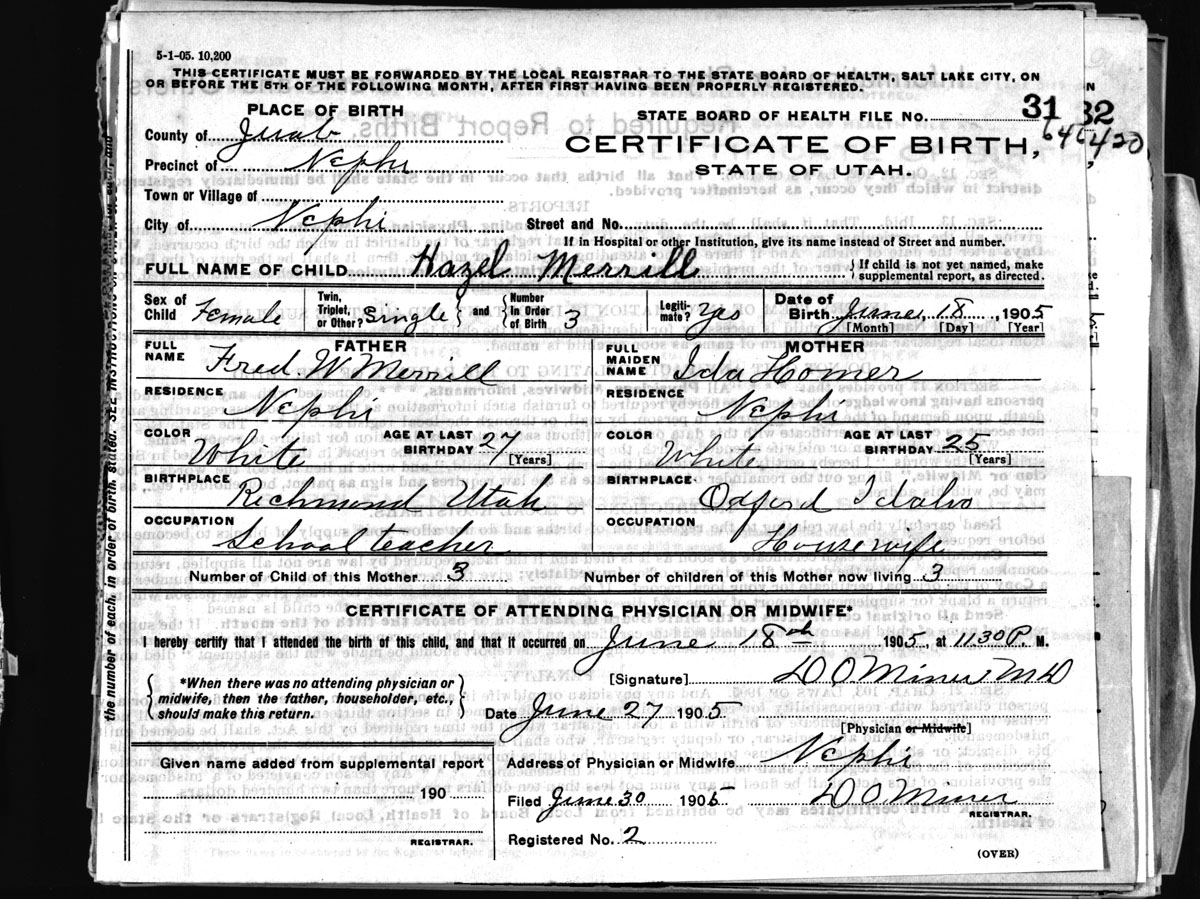 5-1-05. 10,200
THIS CERTIFICATE MUST BE FORWARDED BY THE LOCAL REGISTRAR TO THE STATE BOARD OF HEALTH, SALT LAKE CITY, ON
OR BEFORE THE 5TH OF THE FOLLOWING MONTH, AFTER FIRST HAVING BEEN PROPERLY REGISTERED.
PLACE OF BIRTH
STATE BOARD OF HEALTH FILE No. 31 32
County of Juab
CERTIFICATE OF BIRTH,
Precinct of Nephi
STATE OF UTAH.
Town or Village of
City of Nephi Street and No.
If in Hospital or other Institution, give its name instead of Street and number.
FULL NAME OF CHILD Hazel Merrill { If child is not yet named, make supplemental report, as directed.
Sex of Child Female Twin, Triplet, or Other? Single } and { Number in Order of Birth 3 Legitimate? Yes Date of Birth June 18, 1905
[Month] [Day] [Year]
FATHER MOTHER
FULL NAME Fred. W Merrill FULL MAIDEN NAME Ida Homer
RESIDENCE Nephi RESIDENCE Nephi
COLOR White AGE AT LAST BIRTHDAY 27 [Years] COLOR White AGE AT LAST BIRTHDAY 25 [Years]
BIRTHPLACE Richmond Utah BIRTHPLACE Oxford Idaho
OCCUPATION School teacher OCCUPATION Housewife
Number of Child of this Mother 3 Number of children of this Mother now living 3
CERTIFICATE OF ATTENDING PHYSICIAN OR MIDWIFE*
I hereby certify that I attended the birth of this child, and that it occurred on June 18th 1905, at 11.30 P. M.
{ *When there was no attending physician or midwife, then the father, householder, etc., should make this return. }
[Signature] D O Miner MD
Date June 27 1905
[Physician or Midwife]
Given name added from supplemental report
Address of Physician or Midwife Nephi
190
Filed June 30 1905 D O Miner
REGISTRAR.
REGISTRAR.
Registered No. 2
(OVER)
the number of each, in order of birth, stated. SEE INSTRUCTIONS